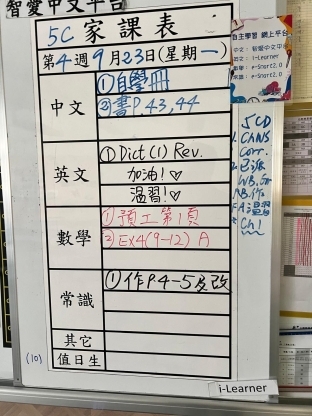 智愛中文平台
5C 家課表
第4週9月23日(星期一)
中文
①自學冊
②書P.43,44
英文
①Dict(1) Rev.
加油!♡
溫習!♡
數學
①預工第1頁
②Ex4(9-12) A
常識
①作P4-5及改
其它
(10)
值日生
自主學習 網上平台
中文:智愛中文平台
英文:i-Learner
數學:e-Smart2.0
常識:e-Smart2.0
5CD
CANS
Corr.
已派
i-Learner